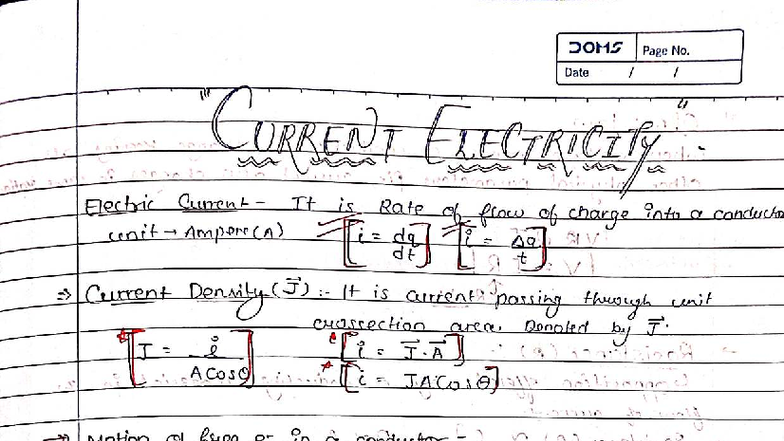 DOMS Page No.
Date / /
"CURRENT ELECTRICITY"
Electric Current - It is Rate of flow of charge into a conductor
unit → Ampere(A) [i = dq/dt] [i = Δq/t]
⇒ Current Density (J⃗) :- It is current passing through unit
crossection area. Donoted by J⃗.
[J = i/ACosθ] [i = J⃗·A⃗]
[i = JACosθ]
→ Motion of free e- in a conductor -